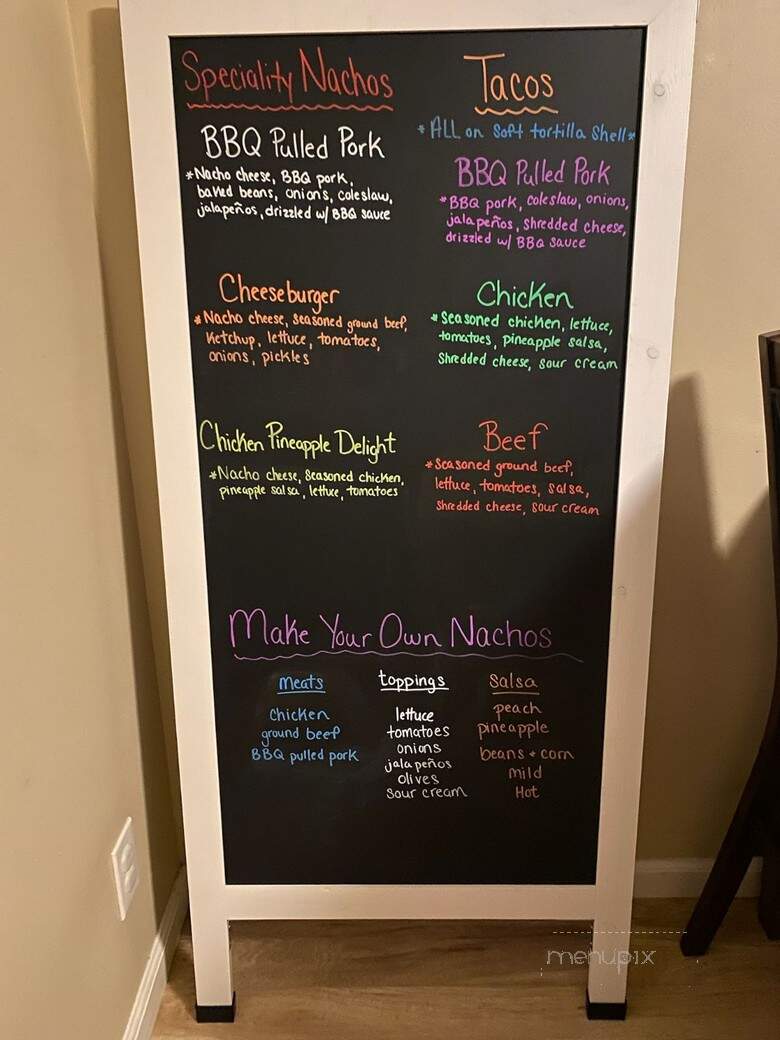 Speciality Nachos
BBQ Pulled Pork
*Nacho cheese, BBQ pork,
baked beans, onions, coleslaw,
jalapeños, drizzled w/ BBQ sauce
Cheeseburger
*Nacho cheese, seasoned ground beef,
ketchup, lettuce, tomatoes,
onions, pickles
Chicken Pineapple Delight
*Nacho cheese, seasoned chicken,
pineapple salsa, lettuce, tomatoes
Tacos
*ALL on soft tortilla shell*
BBQ Pulled Pork
*BBQ pork, coleslaw, onions,
jalapeños, shredded cheese,
drizzled w/ BBQ sauce
Chicken
*Seasoned chicken, lettuce,
tomatoes, pineapple salsa,
shredded cheese, sour cream
Beef
*Seasoned ground beef,
lettuce, tomatoes, salsa,
shredded cheese, sour cream
Make Your Own Nachos
meats
chicken
ground beef
BBQ pulled pork
toppings
lettuce
tomatoes
onions
jalapeños
olives
sour cream
salsa
peach
pineapple
beans + corn
mild
Hot
menupix